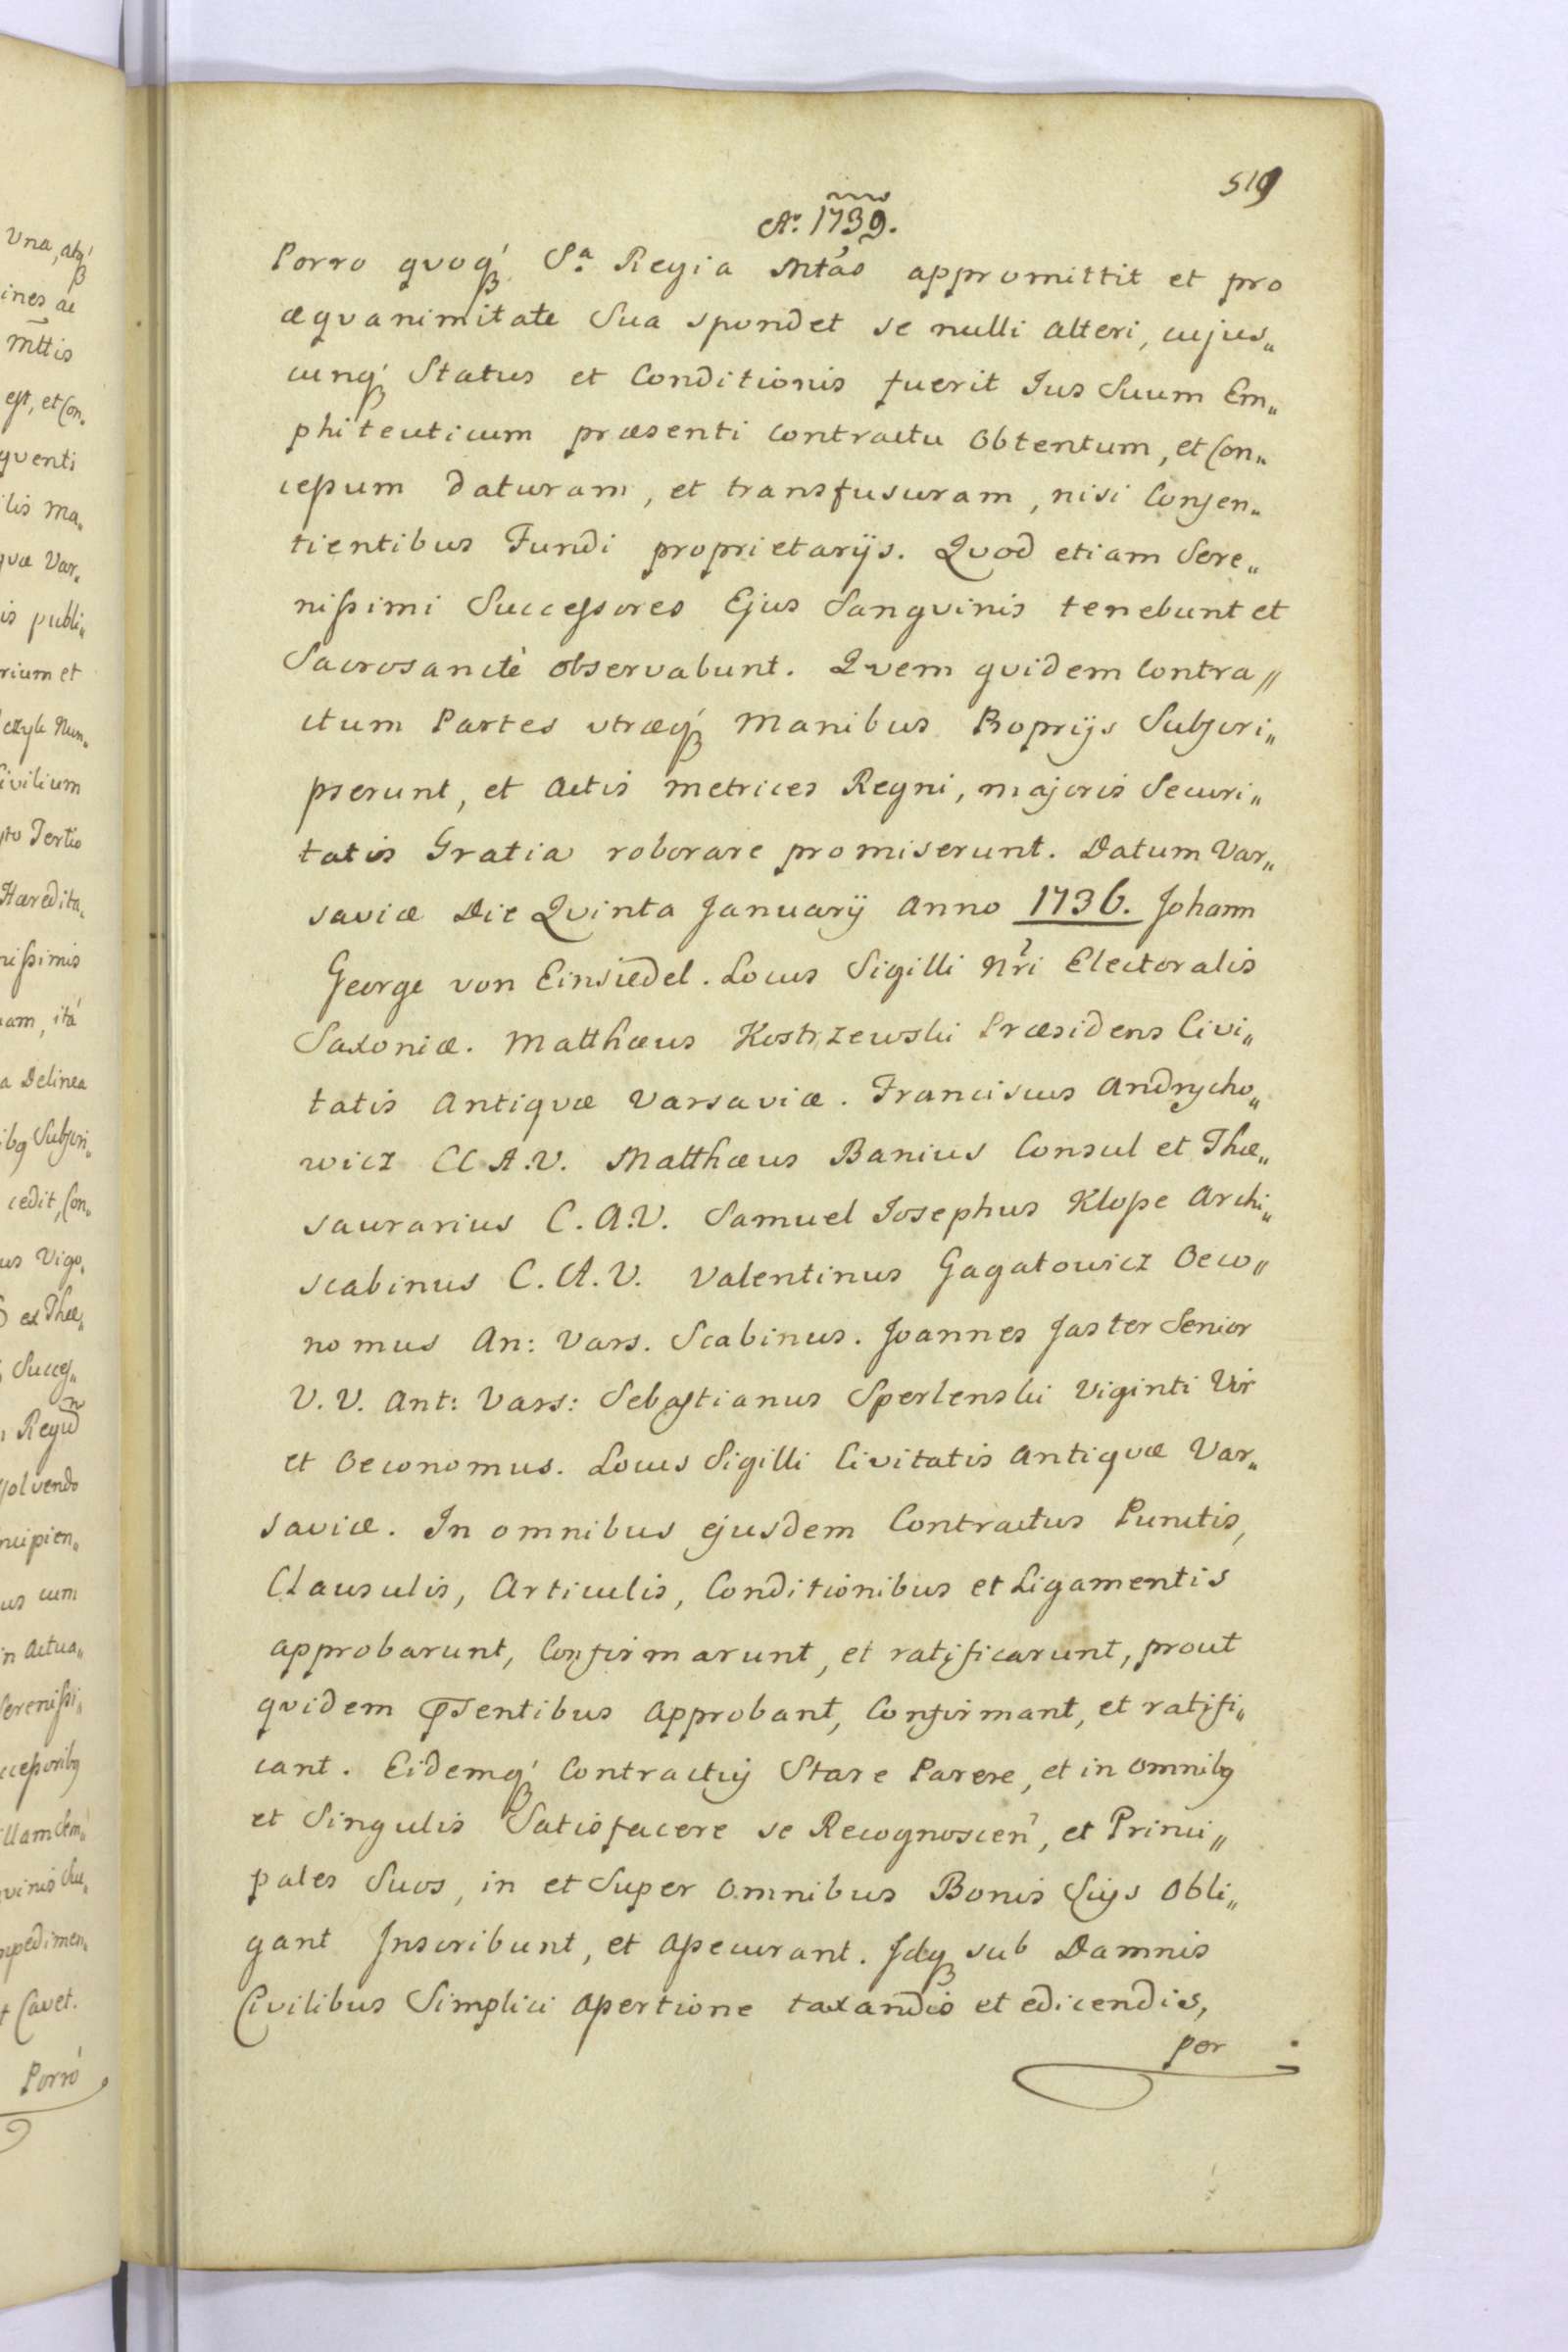 519
Aº 1739.
Porro quoq́ Sª Regia Mtás appromittit et pro
æquanimitate Sua spondet se nulli alteri, cujus„
cunq́ Status et Conditionis fuerit Jus Suum Em„
phiteuticum præsenti contractu obtentum, et Con„
cessum daturam, et transfusuram, nisi Consen„
tientibus Fundi proprietarijs. Quod etiam Sere„
nissimi Successores Ejus Sanguinis tenebunt et
Sacrosanctè observabunt. Quem quidem Contra„
ctum Partes utræq́ Manibus Proprijs Subscri„
pserunt, et Actis Metrices Regni, majoris Securi„
tatis Gratia roborare promiserunt. Datum Var„
saviæ Die Quinta Januarij Anno 1736. Johann
George von Einsiedel. Locus Sigilli Nri Electoralis
Saxoniæ. Matthæus Kostrzewski Præsidens Civi„
tatis Antiquæ Varsaviæ. Franciscus Andrycho„
wicz CC A.V. Matthæus Banius Consul et Thæ„
saurarius C.A.V. Samuel Josephus Klosse Archi„
scabinus C.A.V. Valentinus Gagatowicz Oeco„
nomus An: Vars. Scabinus. Joannes Jaster Senior
V.V. Ant: Vars: Sebastianus Sperlenski Viginti Vir
et Oeconomus. Locus Sigilli Civitatis Antiquæ Var„
saviæ. In omnibus ejusdem Contractus Punctis,
Clausulis, Articulis, Conditionibus et Ligamentis
approbarunt, Confirmarunt, et ratificarunt, prout
quidem psentibus Approbant, Confirmant, et ratifi„
cant. Eidemq́ Contractuj Stare Parere, et in omnibq
et Singulis Satisfacere se Recognoscen, et Princi„
pales Suos, in et Super omnibus Bonis Suys Obli„
gant Inscribunt, et assecurant. Jdq sub Damnis
Civilibus Simplici assertione taxandis et edicendis,
per
Una, atq́
ines ac
Mttis
est, et Con„
quenti
ilis Ma„
quæ Var„
is publi„
rium et
Civilium
Tertio
Hæredita„
nissimis
uam, ità
a Delinea
ibq Subscri„
cedit, Con„
us Vigo„
et Thæ„
Succes„
Regni
solvendo
ncipien„
us cum
in Actua„
Serenissi„
ccessoribq
illam Sem„
vinis Suc„
mpedimen„
t Cavet.
Porrò